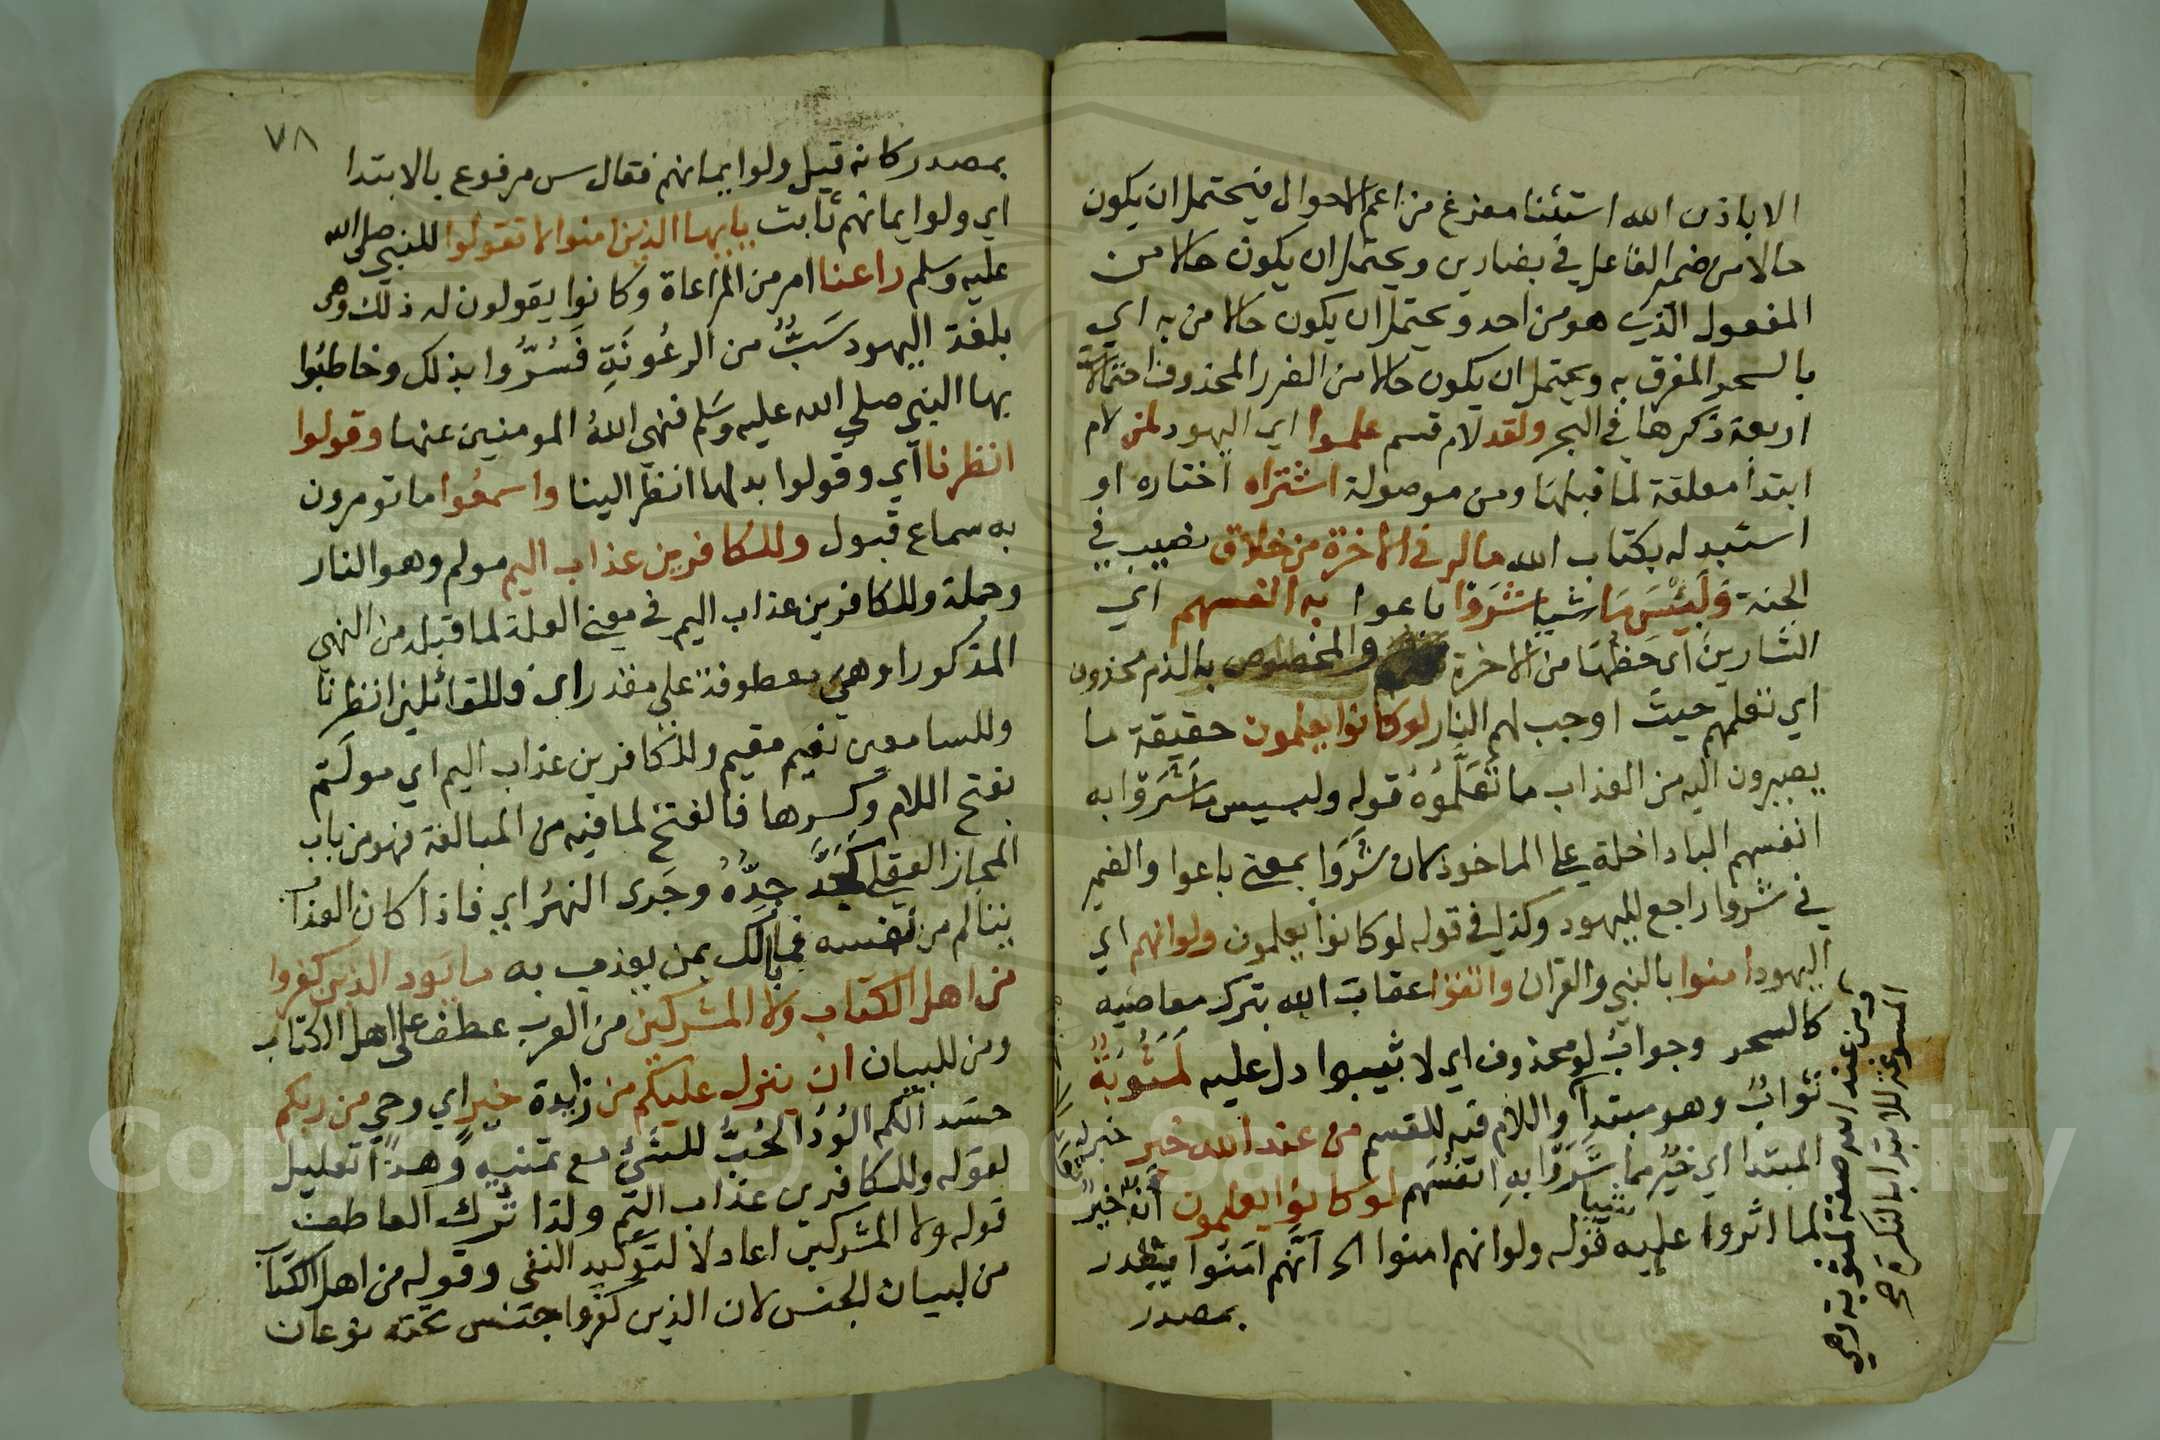 الا باذن الله استثنا مفرغ من اعم الاحوال فيحتمل ان يكون
حالا من ضمير الفاعل في بضارين ويحتمل ان يكون حالا من
المفعول الذي هو من احد ويحتمل ان يكون حالا من به اي
بالسحر المفرق به ويحتمل ان يكون حالا من الضرر المحذوف احتمالات
اربعة ذكرها في البحر ولقد لام قسم علموا اي اليهود لمن لام
ابتدا معلقة لما قبلها ومن موصولة اشتراه اختاره او
استبدله بكتاب الله ماله في الاخرة من خلاق نصيب في
الجنة ولبيس ما شيا شروا باعوا به انفسهم اي
الشارين اي حظها من الاخرة والمخصوص بالذم محذوف
اي تعلمهم حيث اوجب لهم النار لو كانوا يعلمون حقيقة ما
يصيرون اليه من العذاب ما تعلموه قوله ولبيس ما شروا به
انفسهم البا داخلة على الماخوذ لان شروا بمعنى باعوا والضمير
في شروا راجع لليهود وكذلك في قوله لو كانوا يعلمون ولو انهم اي
اليهود امنوا بالنبي والقران واتقوا عقاب الله بترك معاصيه
كالسحر وجواب لو محذوف اي لا ثيبوا دل عليه لمثوبة
ثواب وهو مبتدا واللام فيه للقسم من عند الله خير خبر
المبتدا اي خير مما شروا به انفسهم لو كانوا يعلمون انه خير
لما اثروا عليه قوله ولو انهم امنوا الخ انهم امنوا مقدر
بمصدر
ومن عند الله صفة لمثوبة وهي
المسوغ للابتدا بالنكرة
٧٨
بمصدر كانه قيل ولو ايمانهم فقال س مرفوع بالابتدا
اي ولو ايمانهم ثابت يايها الذين امنوا لا تقولوا للنبي صلى الله
عليه وسلم راعنا امر من المراعاة وكانوا يقولون له ذلك وهي
بلغة اليهود سب من الرعونة فسروا بذلك وخاطبوا
بها النبي صلى الله عليه وسلم فنهى الله المومنين عنها وقولوا
انظرنا اي وقولوا بدلها انظر الينا واسمعوا ما تومرون
به سماع قبول وللكافرين عذاب اليم مولم وهو النار
وجملة وللكافرين عذاب اليم في معنى العلة لما قبل من النهي
المذكور او هي معطوفة على مقدر اي وللقائلين انظرنا
وللسامعين نعيم مقيم وللكافرين عذاب اليم اي مولم
بفتح اللام وكسرها فالفتح لما فيه من المبالغة فهو من باب
المجاز العقلي كجد جده وجرى النهر اي فاذا كان العذاب
يتالم من نفسه فما بالك بمن يعذب به ما يود الذين كفروا
من اهل الكتاب ولا المشركين من العرب عطف على اهل الكتاب
ومن للبيان ان ينزل عليكم من زايدة خير اي وحي من ربكم
حسدا لكم الود الحب للشي مع تمنيه وهذا تعليل
لقوله وللكافرين عذاب اليم ولذا ترك العاطف
قوله ولا المشركين اعاد لا لتوكيد النفي وقوله من اهل الكتاب
من لبيان الجنس لان الذين كفروا جنس تحته نوعان
Copyright © King Saud University